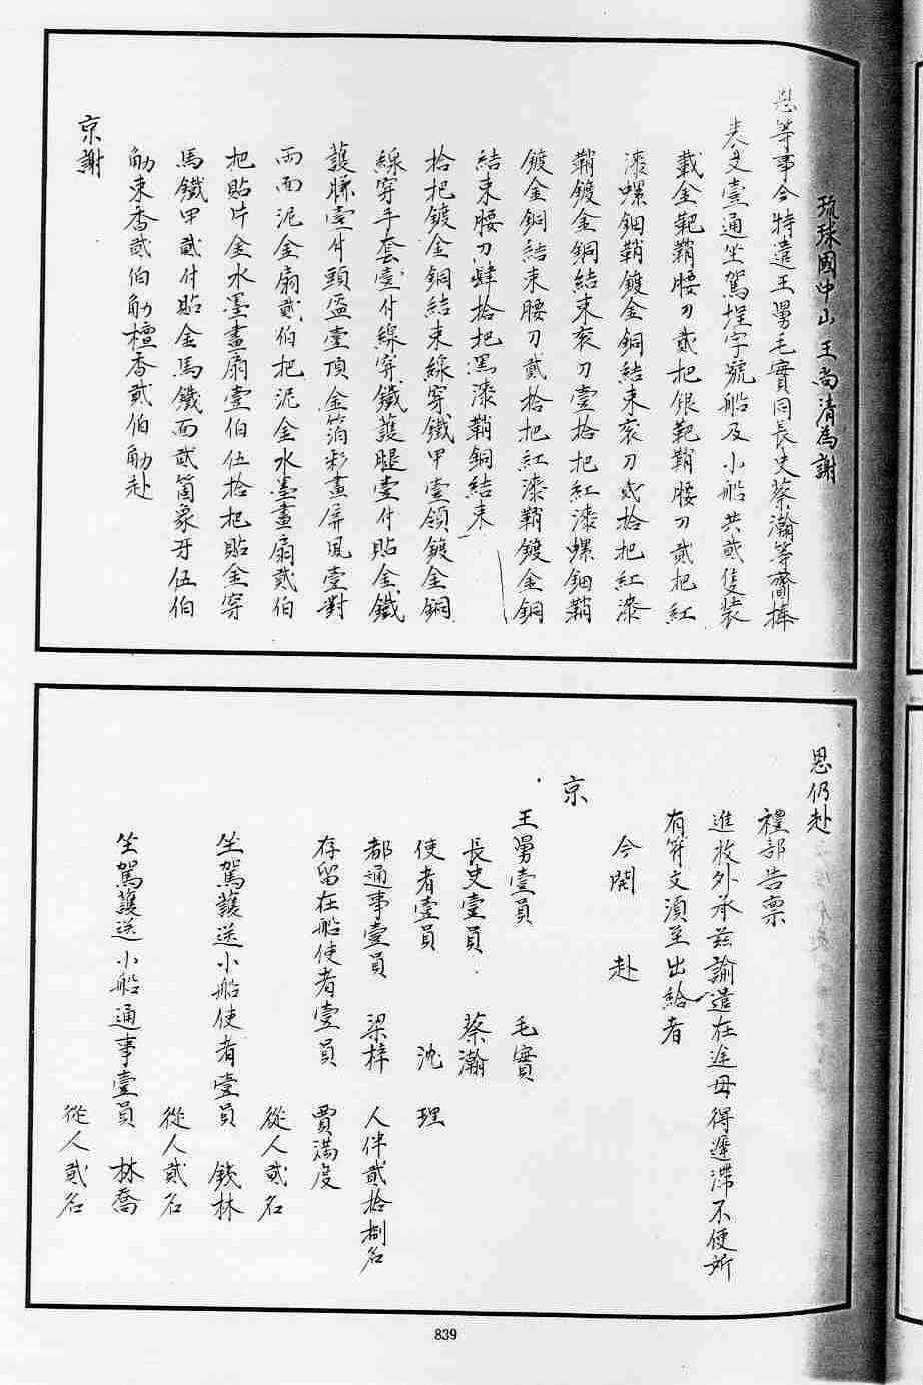 琉球國中山王尚清為謝
恩等事今特遣王舅毛實同長史蔡瀚等齎捧
表文壹通坐駕埕字號船及小船共貳隻裝
載金靶鞘腰刀貳把銀靶鞘腰刀貳把紅
漆螺鈿鞘鍍金銅結束袞刀貳拾把紅漆
鞘鍍金銅結束袞刀壹拾把紅漆螺鈿鞘
鍍金銅結束腰刀貳拾把紅漆鞘鍍金銅
結束腰刀肆拾把黑漆鞘銅結束
拾把鍍金銅結束線穿鐵甲壹領鍍金銅
線穿手套壹付線穿鐵護腿壹付貼金鐵
護膝壹付頭盔壹頂金箔彩畫屏風壹對
兩面泥金扇貳伯把泥金水墨畫扇貳伯
把貼片金水墨畫扇壹伯伍拾把貼金穿
馬鐵甲貳付貼金馬鐵面貳箇象牙伍伯
觔束香貳伯觔檀香貳伯觔赴
京謝
恩仍赴
禮部告稟
進收外承茲諭遣在途毋得遲滯不便所
有符文湏至出給者
今開 赴
京
王舅壹員 毛實
長史壹員 蔡瀚
使者壹員 沈理
都通事壹員 梁梓 人伴貳拾捌名
存留在船使者壹員 賈滿度
從人貳名
坐駕護送小船使者壹員 錢林
從人貳名
坐駕護送小船通事壹員 林喬
從人貳名
839